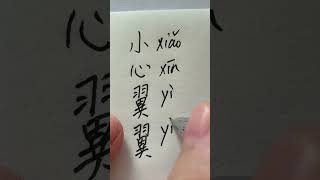 小 xiǎo
心 xīn
翼 yì
翼 yì